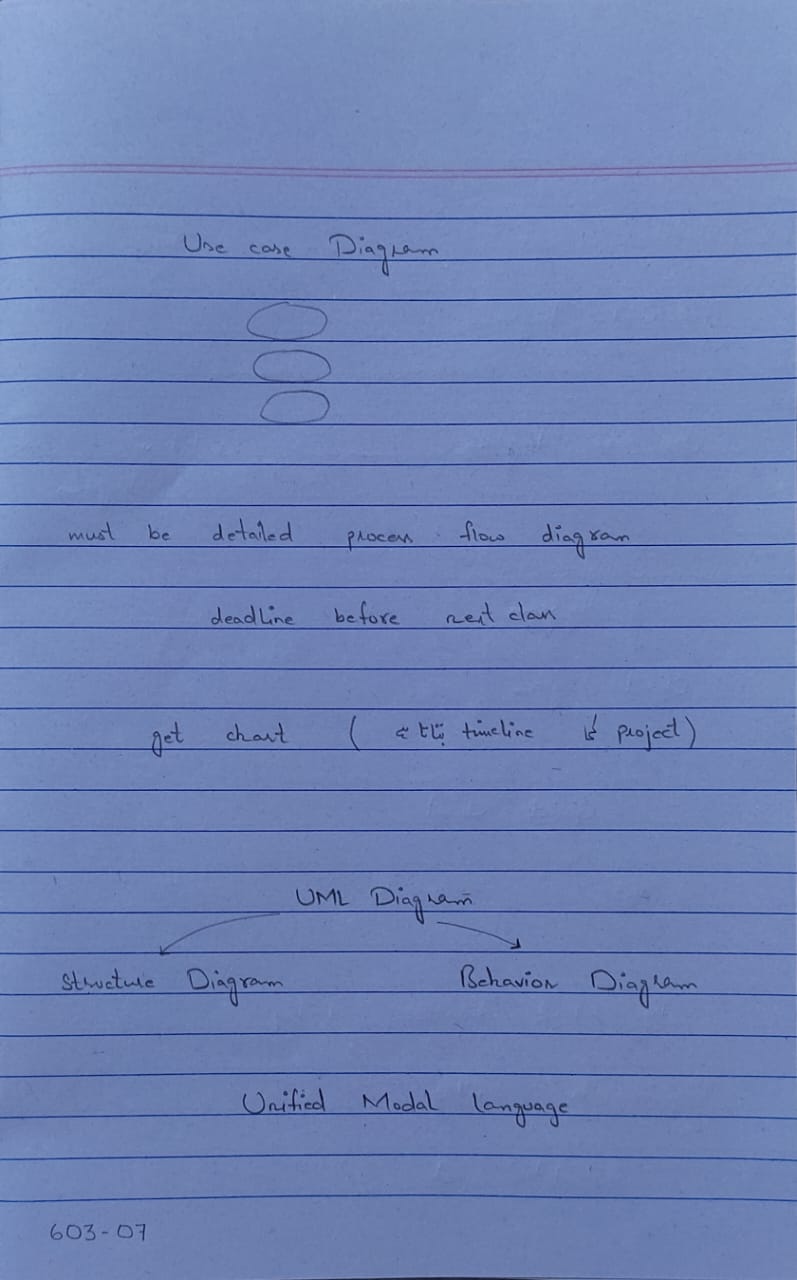 Use case Diagram
must be detailed process flow diagram
deadline before next class
get chart ( timeline کا project)
UML Diagram
Structure Diagram Behavior Diagram
Unified Modal language
603-07